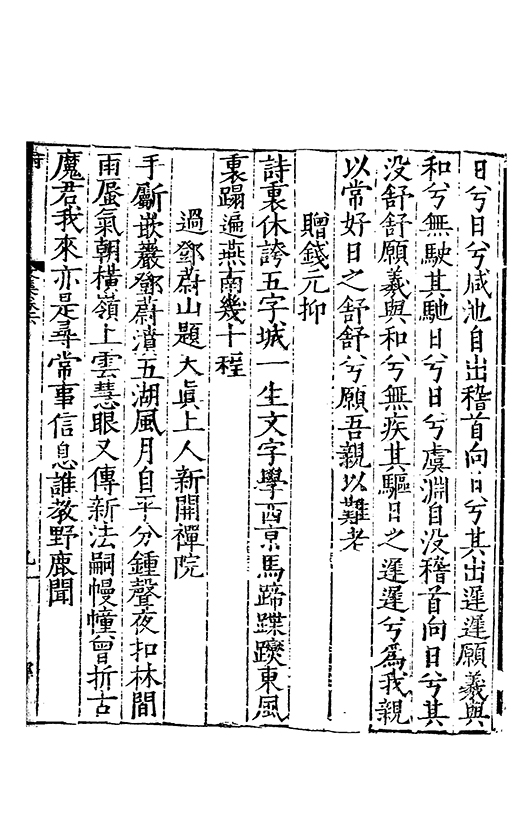 日兮日兮咸池自出稽首向日兮其出遲遲願羲與
和兮無駛其馳日兮日兮虞淵自没稽首向日兮其
没舒舒願羲與和兮無疾其驅日之遲遲兮爲我親
以常好日之舒舒兮願吾親以難老
贈錢元抑
詩裏休誇五字城一生文字學西京馬蹄蹀躞東風
裏蹋遍燕南幾十程
過鄧蔚山題大眞上人新開禪院
手斸嵌巖鄧蔚濆五湖風月自平分鍾聲夜扣林間
雨蜃氣朝横嶺上雲慧眼又傳新法嗣幔幢曾折古
魔君我來亦是尋常事信息誰教野麋聞